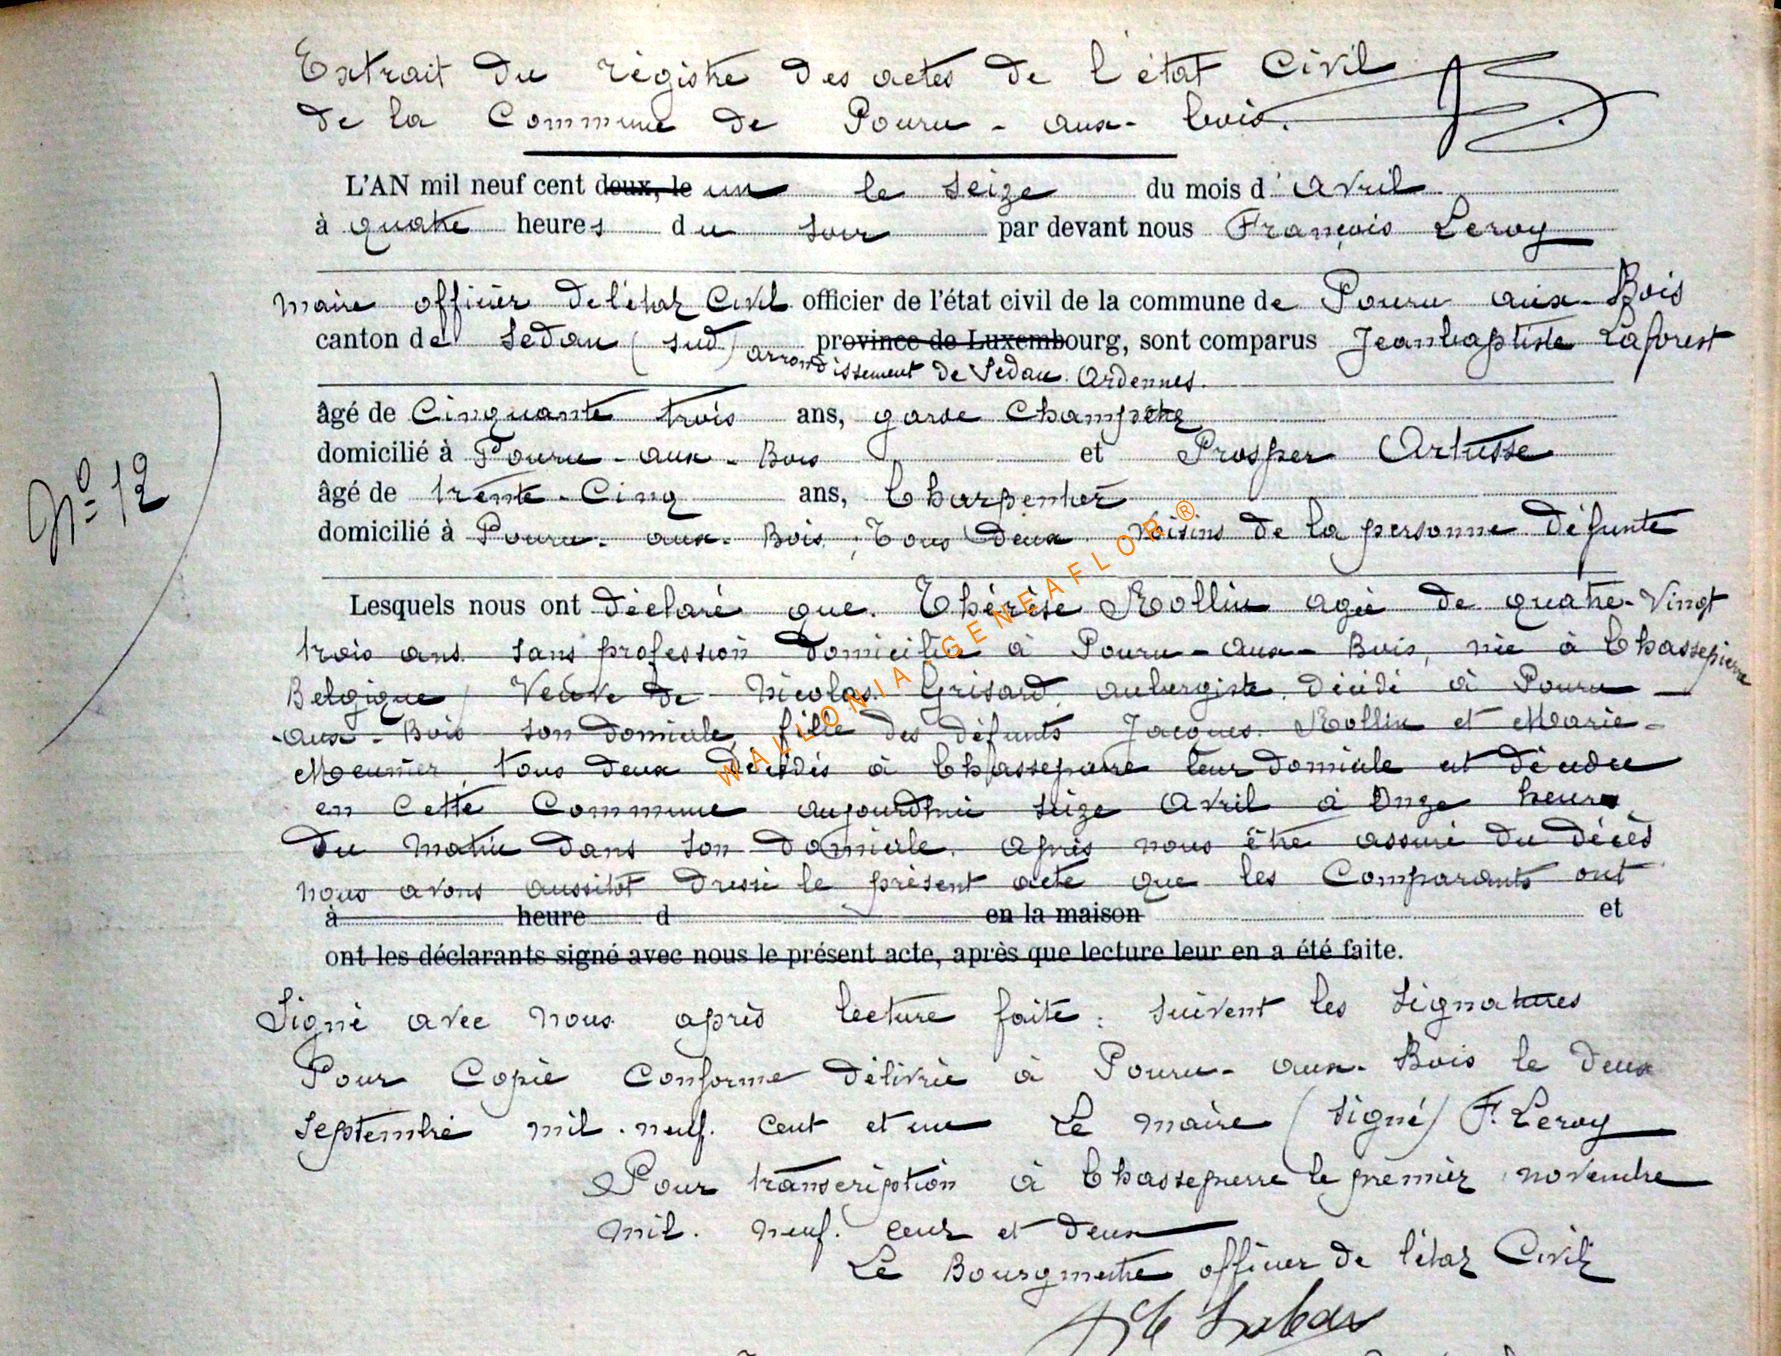 Extrait du régistre des actes de l'état Civil
de la Commune de Pouru-aux-bois.
L'AN mil neuf cent deux, le un le seize du mois d' avril
à quatre heures du soir par devant nous François Leroy
maire officier de l'état Civil officier de l'état civil de la commune de Pouru aux-Bois
canton de Sedan (sud) province de Luxembourg, sont comparus Jeanbaptiste Laforest
arrondissement de Sedan Ardennes.
âgé de Cinquante trois ans, garde Champêtre
domicilié à Pouru-aux-Bois et Prosper Artusse
âgé de trente-Cinq ans, Charpentier
domicilié à Pouru-aux-Bois, Tous deux voisins de la personne défunte
N° 12
Lesquels nous ont déclaré que Thérèse Rollin agée de quatre-Vingt
trois ans sans profession domiciliée à Pouru-aux-Bois, née à Chassepierre
Belgique, Veuve de Nicolas Grisard, aubergiste décédé à Pouru-
-aux-Bois son domicile, fille des défunts Jacques Rollin et Marie-
Meunier, tous deux décédés à Chassepierre leur domicile est décédée
en cette Commune aujourd'hui seize Avril à Onze heures
du matin dans son domicile. après nous être assuré du décès
nous avons aussitôt dressé le présent acte que les Comparants ont
à heure d en la maison et
ont les déclarants signé avec nous le présent acte, après que lecture leur en a été faite.
Signé avec nous après lecture faite : suivent les signatures
Pour Copie Conforme délivrée à Pouru-aux-Bois le deux
septembre mil-neuf-cent et un Le maire (signé) F. Leroy
Pour transcription à Chassepierre le premier novembre
mil-neuf-cent et deux
Le Bourgmestre officier de l'état Civil
WALLONIA-GENEAFLOR®